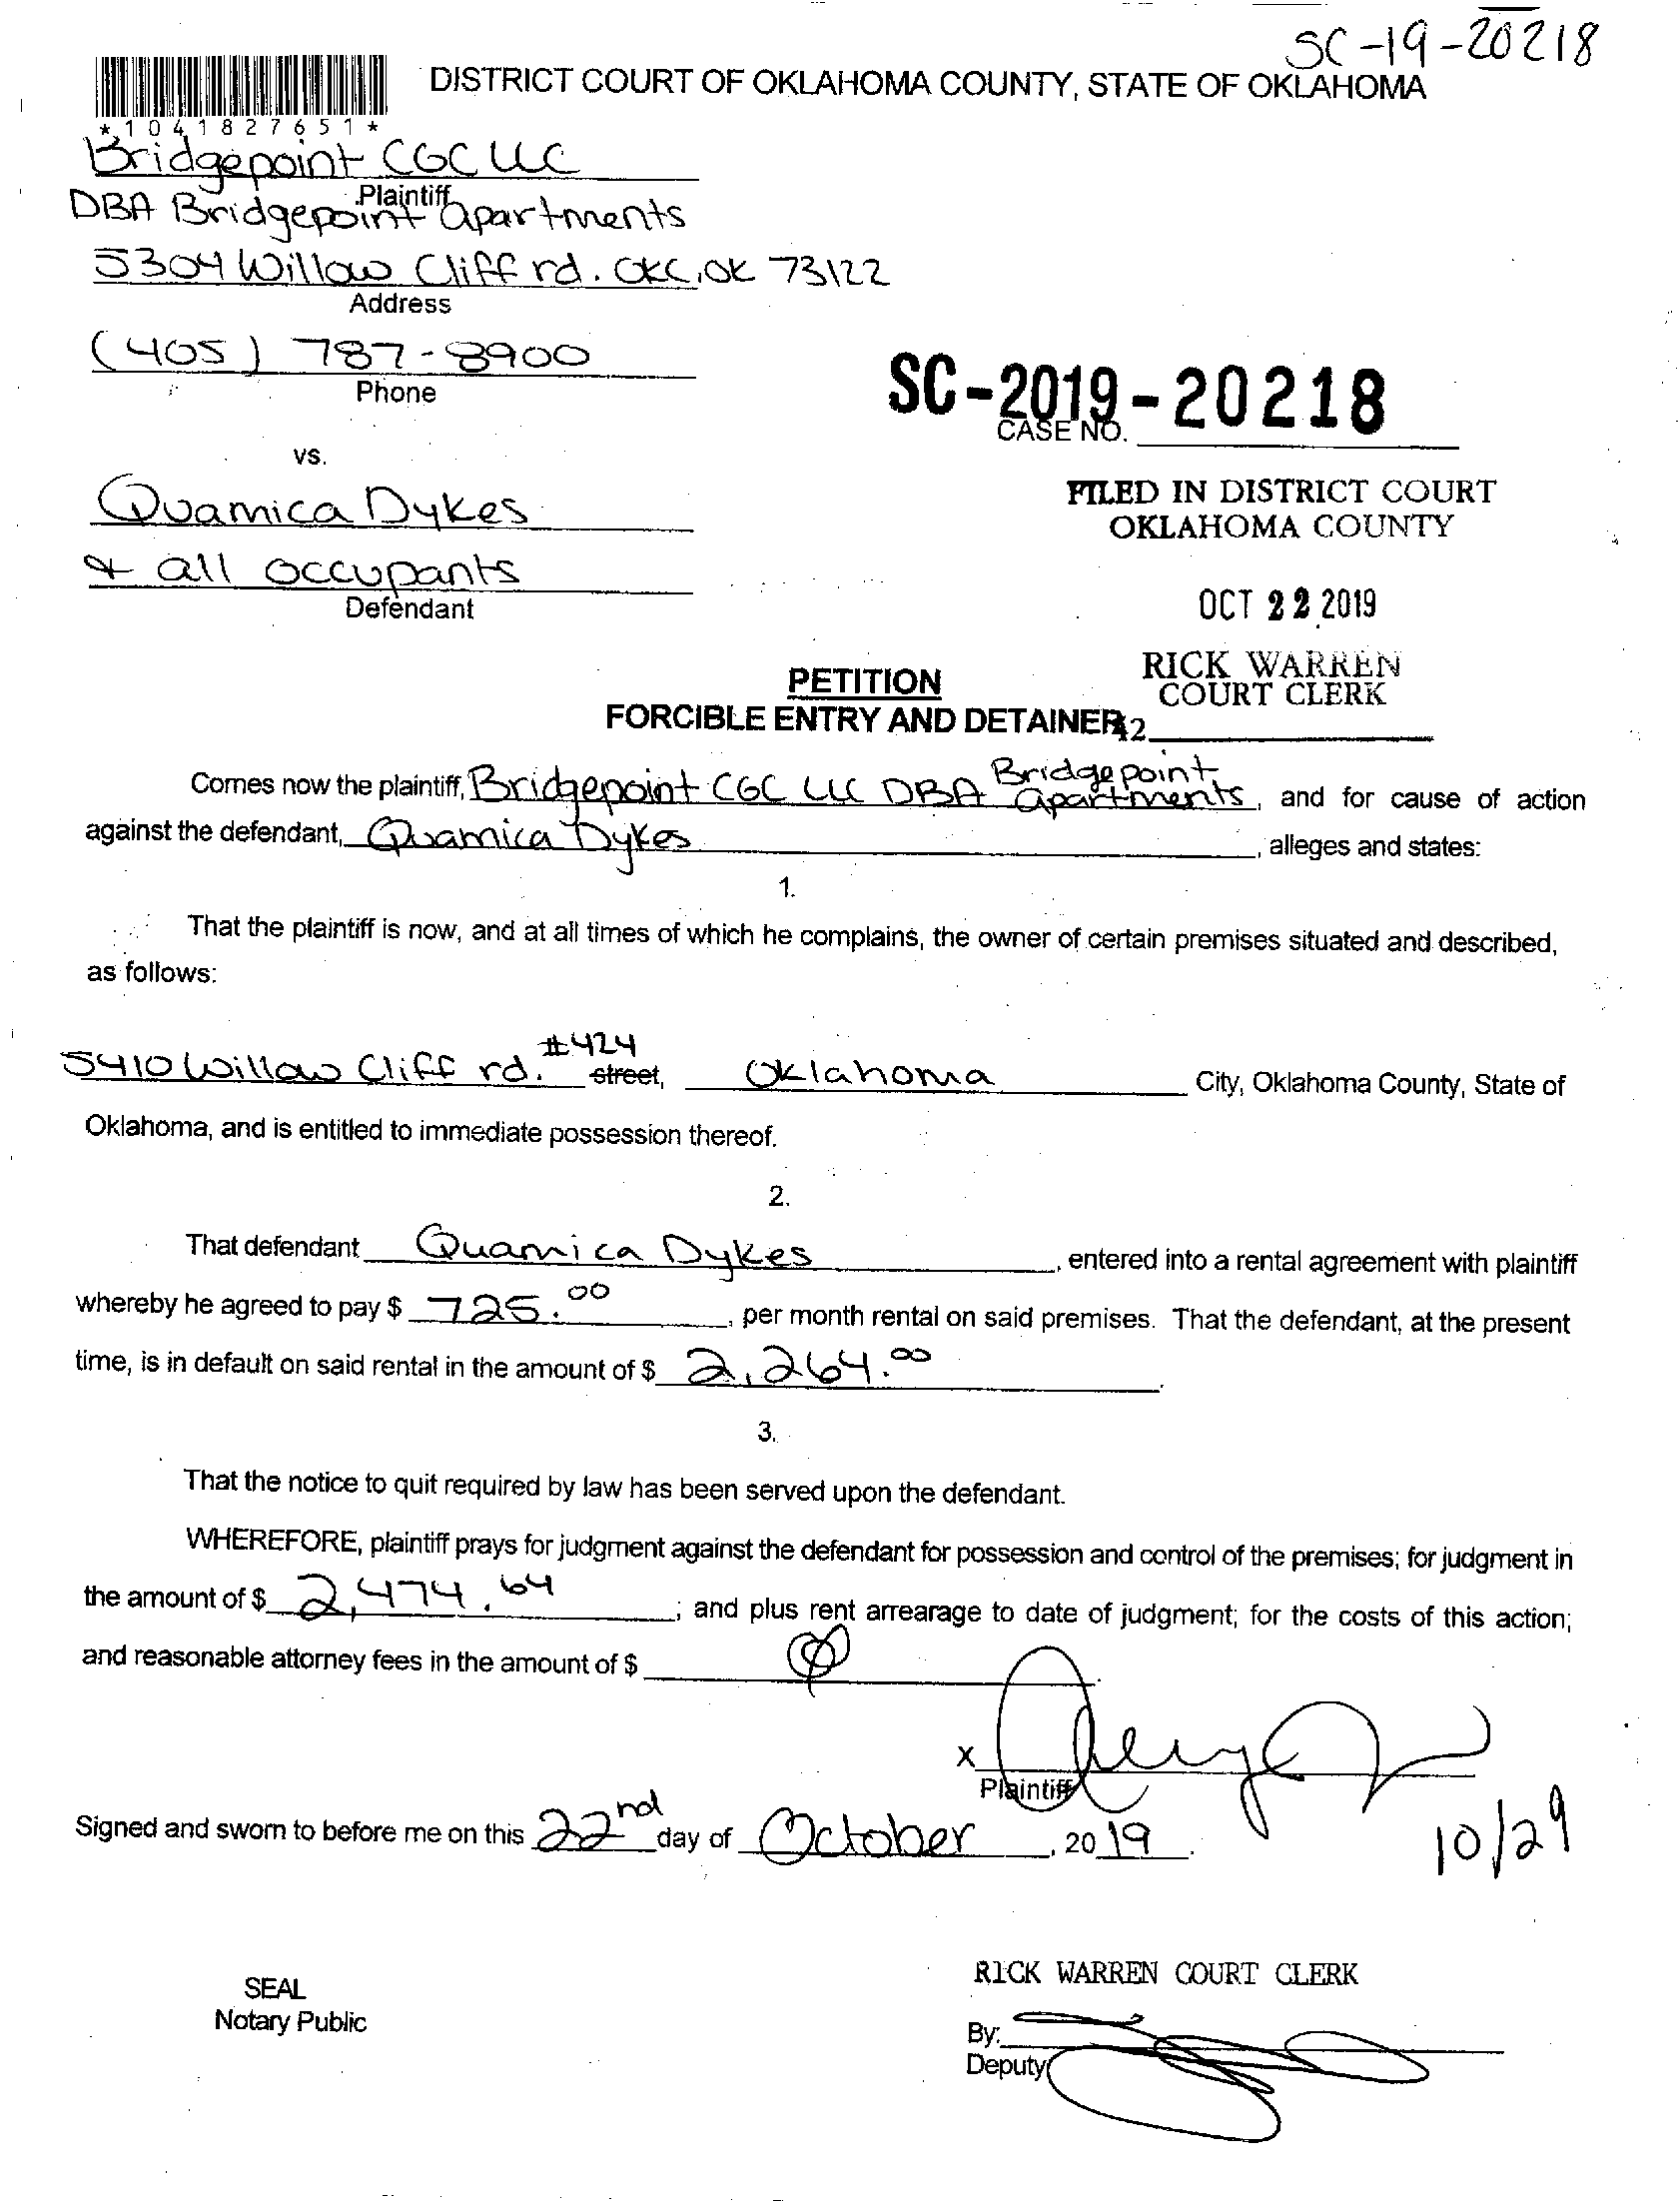 SC-19-20218
DISTRICT COURT OF OKLAHOMA COUNTY, STATE OF OKLAHOMA
*1041827651*
Bridgepoint CGC LLC
Plaintiff
DBA Bridgepoint apartments
5304 Willow Cliff rd. OKC, OK 73122
Address
(405) 787-8900
Phone
SC-2019-20218
CASE NO.
vs.
Quamica Dykes
& all occupants
Defendant
FILED IN DISTRICT COURT
OKLAHOMA COUNTY
OCT 22 2019
RICK WARREN
COURT CLERK
42
PETITION
FORCIBLE ENTRY AND DETAINER
Comes now the plaintiff, Bridgepoint CGC LLC DBA Bridgepoint apartments, and for cause of action
against the defendant, Quamica Dykes, alleges and states:
1.
That the plaintiff is now, and at all times of which he complains, the owner of certain premises situated and described,
as follows:
5410 Willow Cliff rd. #424 street, Oklahoma City, Oklahoma County, State of
Oklahoma, and is entitled to immediate possession thereof.
2.
That defendant Quamica Dykes, entered into a rental agreement with plaintiff
whereby he agreed to pay $ 725.00, per month rental on said premises. That the defendant, at the present
time, is in default on said rental in the amount of $ 2,264.00.
3.
That the notice to quit required by law has been served upon the defendant.
WHEREFORE, plaintiff prays for judgment against the defendant for possession and control of the premises; for judgment in
the amount of $ 2,474.64; and plus rent arrearage to date of judgment; for the costs of this action;
and reasonable attorney fees in the amount of $
X
Plaintiff
Signed and sworn to before me on this 22nd day of October, 2019.
10/29
SEAL
Notary Public
RICK WARREN COURT CLERK
By:
Deputy